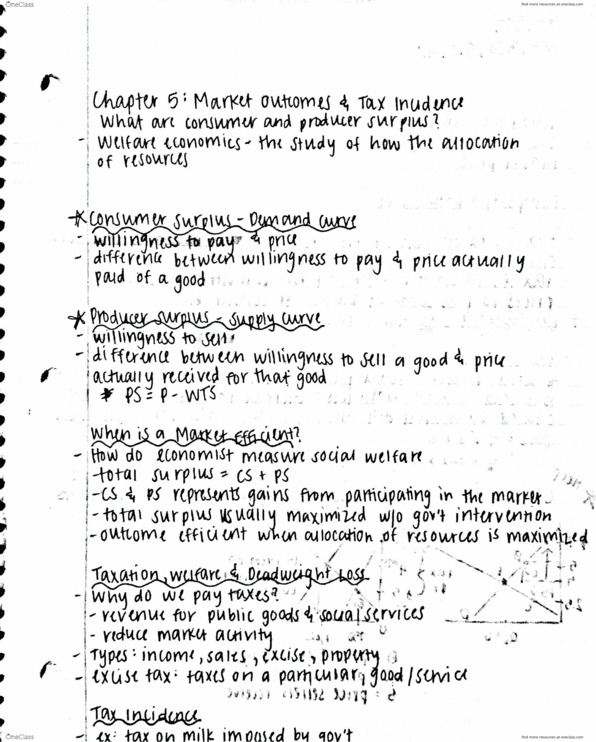 OneClass
find more resources at oneclass.com
Chapter 5: Market Outcomes & Tax Incidence
What are consumer and producer surplus?
- Welfare economics - the study of how the allocation
of resources
* Consumer Surplus - Demand curve
- willingness to pay & price
- difference between willingness to pay & price actually
paid of a good
* Producer surplus - supply curve
- willingness to sell
- difference between willingness to sell a good & price
actually received for that good
* PS = P - WTS
When is a Market Efficient?
- How do economist measure social welfare
- total surplus = CS + PS
- CS & PS represents gains from participating in the market
- total surplus usually maximized w/o gov't intervention
- outcome efficient when allocation of resources is maximized
Taxation, Welfare, & Deadweight Loss
- Why do we pay taxes?
- revenue for public goods & social services
- reduce market activity
- Types: income, sales, excise, property
- excise tax: taxes on a particular good/service
Tax Incidence
- ex: tax on milk imposed by gov't
OneClass
find more resources at oneclass.com